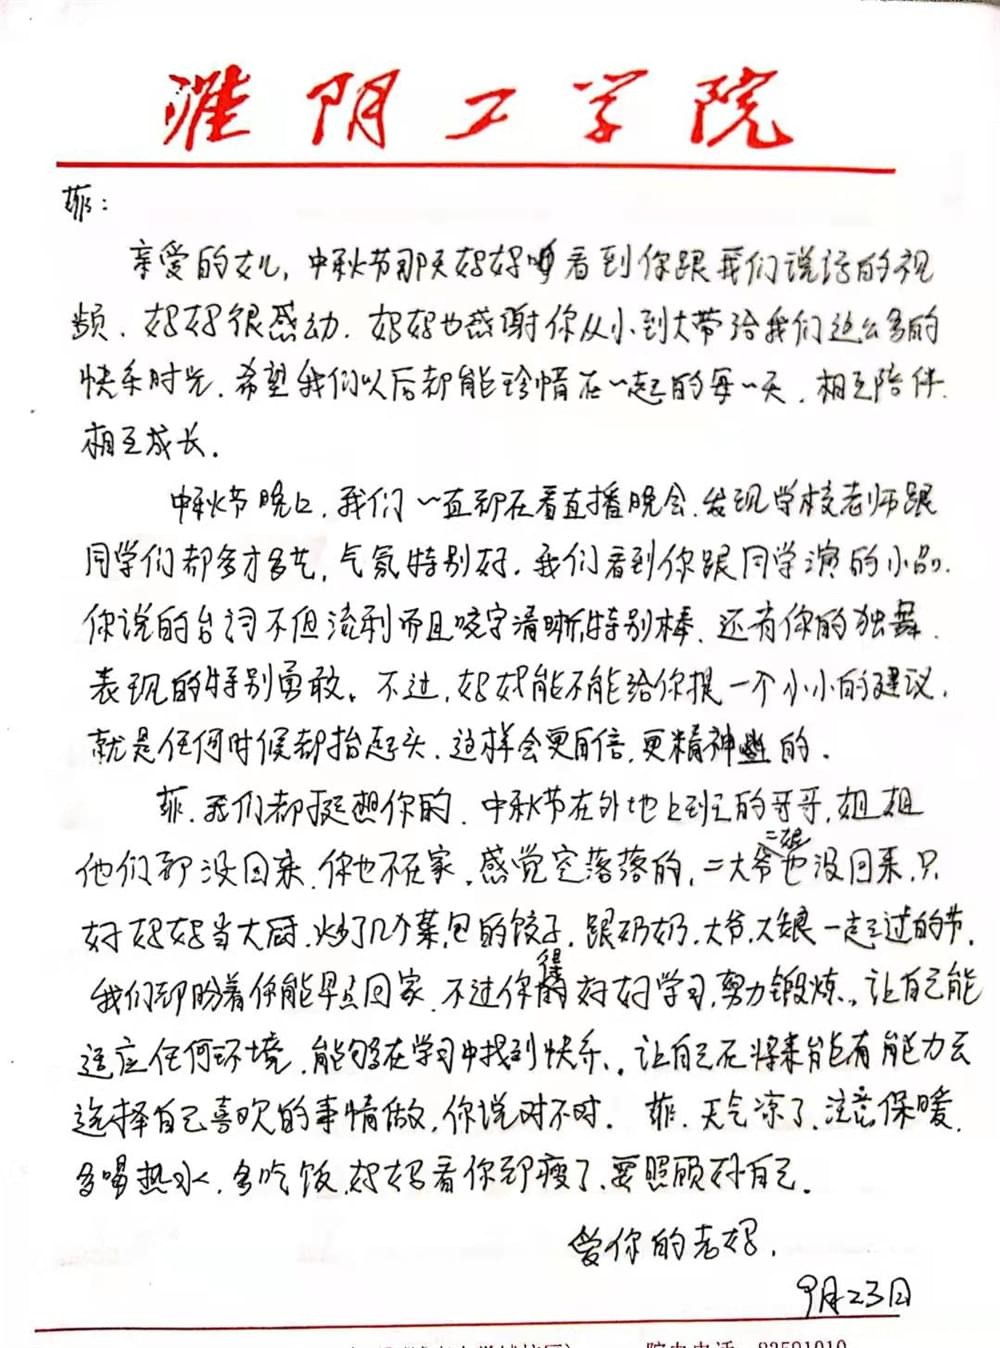 淮阴工学院
菲：
亲爱的女儿，中秋节那天妈妈看到你跟我们说话的视
频，妈妈很感动，妈妈也感谢你从小到大带给我们这么多的
快乐时光，希望我们以后都能珍惜在一起的每一天，相互陪伴，
相互成长。
中秋节晚上，我们一直都在看直播晚会，发现学校老师跟
同学们都多才多艺，气氛特别好，我们看到你跟同学演的小品，
你说的台词不但流利而且咬字清晰，特别棒，还有你的独舞，
表现的特别勇敢。不过，妈妈能不能给你提一个小小的建议，
就是任何时候都抬起头，这样会更自信，更精神些的。
菲，我们都挺想你的，中秋节在外地上班的哥哥，姐姐
他们都没回来，你也不在家，感觉空落落的，二大爷二娘也没回来，只
好妈妈当大厨，炒了几个菜，包的饺子，跟奶奶，大爷，大娘一起过的节，
我们都盼着你能早点回家，不过你得好好学习，努力锻炼，让自己能
适应任何环境，能够在学习中找到快乐，让自己在将来能有能力去
选择自己喜欢的事情做，你说对不对。菲，天气凉了，注意保暖，
多喝热水，多吃饭，妈妈看你都瘦了，要照顾好自己。
爱你的老妈，
9月23日
院办电话：83591010